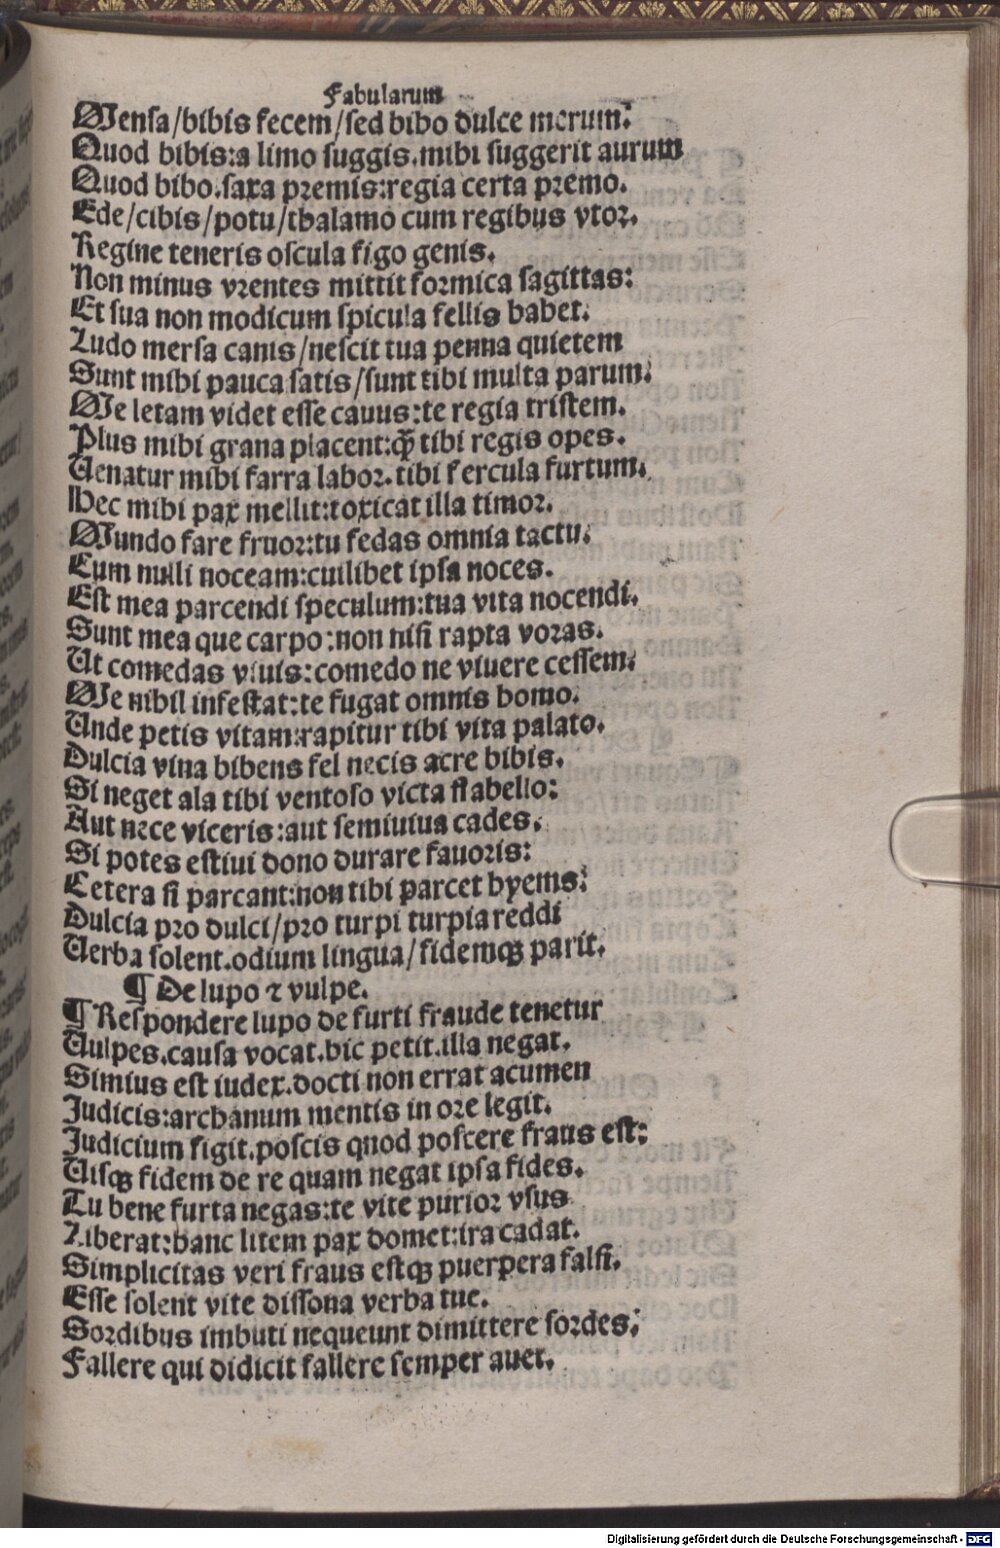 Fabularum
Mensa/bibis fecem/sed bibo dulce merum:
Quod bibis:a limo suggis.mihi suggerit aurum
Quod bibo.saxa premis:regia certa premo.
Ede/cibis/potu/thalamo cum regibus vtor.
Regine teneris oscula figo genis.
Non minus vrentes mittit formica sagittas:
Et sua non modicum spicula fellis habet.
Ludo mersa canis/nescit tua penna quietem
Sunt mihi pauca satis/sunt tibi multa parum:
Me letam videt esse cauus:te regia tristem.
Plus mihi grana placent:q̃ tibi regis opes.
Uenatur mihi farra labor.tibi fercula furtum.
Hec mihi pax mellit:toxicat illa timor.
Mundo fare fruor:tu fedas omnia tactu:
Cum nulli noceam:cuilibet ipsa noces.
Est mea parcendi speculum:tua vita nocendi.
Sunt mea que carpo:non nisi rapta voras.
Ut comedas viuis:comedo ne viuere cessem:
Me nihil infestat:te fugat omnis homo.
Unde petis vitam:rapitur tibi vita palato.
Dulcia vina bibens fel necis acre bibis.
Si neget ala tibi ventoso victa flabello:
Aut nece viceris:aut semiuiua cades.
Si potes estiui dono durare fauoris:
Cetera si parcant:non tibi parcet hyems:
Dulcia pro dulci/pro turpi turpia reddi
Uerba solent.odium lingua/fidemqꝫ parit.
¶ De lupo ⁊ vulpe.
¶ Respondere lupo de furti fraude tenetur
Uulpes.causa vocat.hic petit.illa negat.
Simius est iudex.docti non errat acumen
Judicis:archanum mentis in ore legit.
Judicium figit.poscis quod poscere fraus est:
Uisqꝫ fidem de re quam negat ipsa fides.
Tu bene furta negas:te vite purior vsus
Liberat:hanc litem pax domet:ira cadat.
Simplicitas veri fraus estqꝫ puerpera falsi.
Esse solent vite dissona verba tue.
Sordibus imbuti nequeunt dimittere sordes:
Fallere qui didicit fallere semper auet.
Digitalisierung gefördert durch die Deutsche Forschungsgemeinschaft - DFG